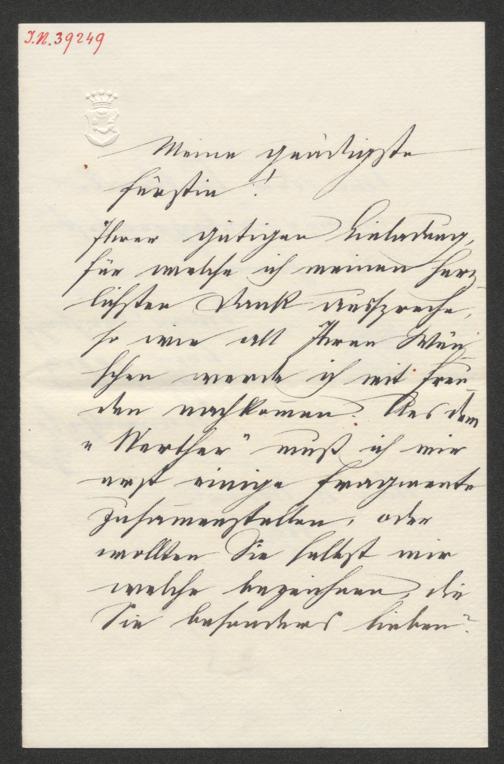 I.N. 39249
Meine gnädigste
Fürstin!
Ihrer gütigen Einladung,
für welche ich meinen herz-
lichsten Dank ausspreche,
so wie all Ihren Wün-
schen werde ich mit Freu-
den nachkommen. Aus dem
"Werther" muß ich mir
erst einige Fragmente
zusammenstellen, oder
wollten Sie selbst mir
welche bezeichnen, die
Sie besonders lieben?